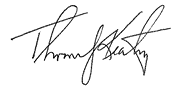 Thomas J Keating